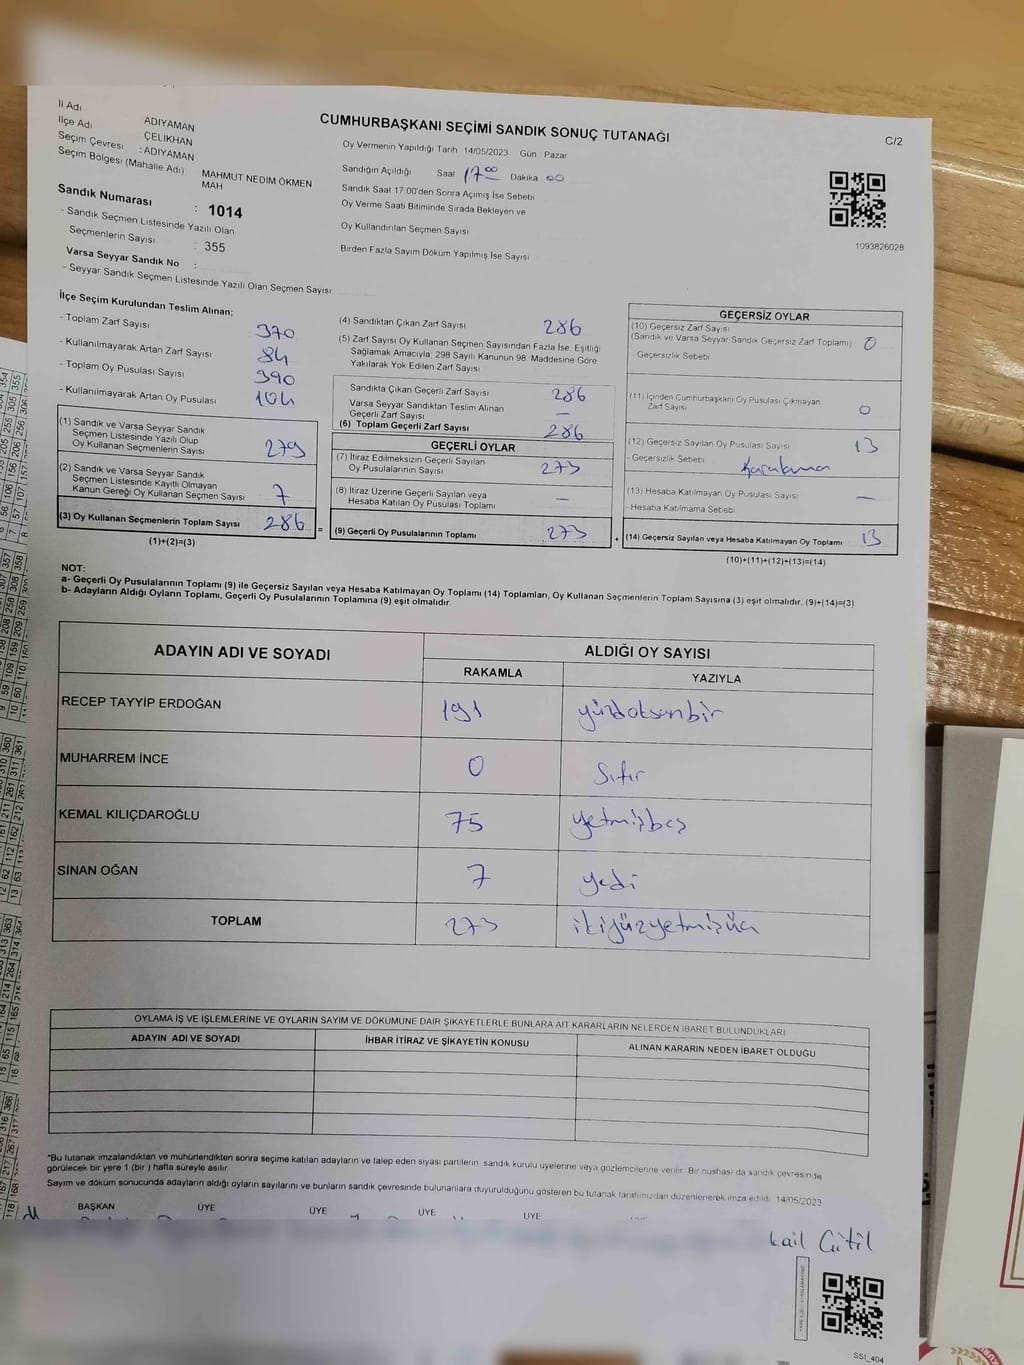 CUMHURBAŞKANI SEÇİMİ SANDIK SONUÇ TUTANAĞI
C/2
İl Adı
ADIYAMAN
İlçe Adı
ÇELİKHAN
Seçim Çevresi
: ADIYAMAN
Seçim Bölgesi (Mahalle Adı)
MAHMUT NEDİM ÖKMEN
MAH
Sandık Numarası : 1014
- Sandık Seçmen Listesinde Yazılı Olan
Seçmenlerin Sayısı : 355
Varsa Seyyar Sandık No :
- Seyyar Sandık Seçmen Listesinde Yazılı Olan Seçmen Sayısı:
Oy Vermenin Yapıldığı Tarih 14/05/2023 Gün Pazar
Sandığın Açıldığı Saat 17:00 Dakika 00
Sandık Saat 17.00'den Sonra Açımış İse Sebebi
Oy Verme Saati Bitiminde Sırada Bekleyen ve
Oy Kullandırılan Seçmen Sayısı
Birden Fazla Sayım Döküm Yapılmış İse Sayısı
1093826028
İlçe Seçim Kurulundan Teslim Alınan;
- Toplam Zarf Sayısı 370
- Kullanılmayarak Artan Zarf Sayısı 84
- Toplam Oy Pusulası Sayısı 390
- Kullanılmayarak Artan Oy Pusulası 104
(1) Sandık ve Varsa Seyyar Sandık
Seçmen Listesinde Yazılı Olup
Oy Kullanan Seçmenlerin Sayısı 279
(2) Sandık ve Varsa Seyyar Sandık
Seçmen Listesinde Kayıtlı Olmayan
Kanun Gereği Oy Kullanan Seçmen Sayısı 7
(3) Oy Kullanan Seçmenlerin Toplam Sayısı 286 =
(1)+(2)=(3)
(4) Sandıktan Çıkan Zarf Sayısı 286
(5) Zarf Sayısı Oy Kullanan Seçmen Sayısından Fazla İse, Eşitliği
Sağlamak Amacıyla, 298 Sayılı Kanunun 98. Maddesine Göre
Yakılarak Yok Edilen Zarf Sayısı
Sandıkta Çıkan Geçerli Zarf Sayısı 286
Varsa Seyyar Sandıktan Teslim Alınan
Geçerli Zarf Sayısı —
(6) Toplam Geçerli Zarf Sayısı 286
GEÇERLİ OYLAR
(7) İtiraz Edilmeksizin Geçerli Sayılan
Oy Pusulalarının Sayısı 273
(8) İtiraz Üzerine Geçerli Sayılan veya
Hesaba Katılan Oy Pusulası Toplamı —
(9) Geçerli Oy Pusulalarının Toplamı 273 +
GEÇERSİZ OYLAR
(10) Geçersiz Zarf Sayısı
(Sandık ve Varsa Seyyar Sandık Geçersiz Zarf Toplamı) 0
- Geçersizlik Sebebi
(11) İçinden Cumhurbaşkanı Oy Pusulası Çıkmayan
Zarf Sayısı 0
(12) Geçersiz Sayılan Oy Pusulası Sayısı 13
- Geçersizlik Sebebi Karalama
(13) Hesaba Katılmayan Oy Pusulası Sayısı —
- Hesaba Katılmama Sebebi
(14) Geçersiz Sayılan veya Hesaba Katılmayan Oy Toplamı 13
(10)+(11)+(12)+(13)=(14)
NOT:
a- Geçerli Oy Pusulalarının Toplamı (9) ile Geçersiz Sayılan veya Hesaba Katılmayan Oy Toplamı (14) Toplamları, Oy Kullanan Seçmenlerin Toplam Sayısına (3) eşit olmalıdır. (9)+(14)=(3)
b- Adayların Aldığı Oyların Toplamı, Geçerli Oy Pusulalarının Toplamına (9) eşit olmalıdır.
ADAYIN ADI VE SOYADI
ALDIĞI OY SAYISI
RAKAMLA YAZIYLA
RECEP TAYYİP ERDOĞAN 191 yüzdoksanbir
MUHARREM İNCE 0 Sıfır
KEMAL KILIÇDAROĞLU 75 yetmişbeş
SİNAN OĞAN 7 yedi
TOPLAM 273 ikiyüzyetmişüç
OYLAMA İŞ VE İŞLEMLERİNE VE OYLARIN SAYIM VE DÖKÜMÜNE DAİR ŞİKAYETLERLE BUNLARA AİT KARARLARIN NELERDEN İBARET BULUNDUKLARI
ADAYIN ADI VE SOYADI İHBAR İTİRAZ VE ŞİKAYETİN KONUSU ALINAN KARARIN NEDEN İBARET OLDUĞU
*Bu tutanak imzalandıktan ve mühürlendikten sonra seçime katılan adayların ve talep eden siyasi partilerin sandık kurulu üyelerine veya gözlemcilerine verilir. Bir nüshası da sandık çevresinde
görülecek bir yere 1 (bir ) hafta süreyle asılır.
Sayım ve döküm sonucunda adayların aldığı oyların sayılarını ve bunların sandık çevresinde bulunanlara duyurulduğunu gösteren bu tutanak tarafımızdan düzenlenerek imza edildi. 14/05/2023
BAŞKAN ÜYE ÜYE ÜYE ÜYE
SSI_404